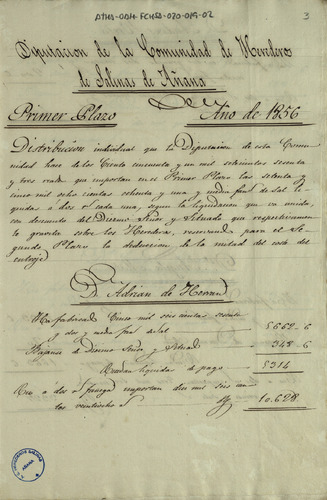 ATHA-DAH-FCHSA-020-019-02
3
Diputacion de la Comunidad de Herederos
de Salinas de Añana
Primer Plazo Año de 1856
Distribucion individual que la Diputacion de esta Comu
nidad hace de los Ciento cincuenta y un mil setecientos sesenta
y tres r.s que importan en el Primer Plazo las setenta y
cinco mil ocho cientas ochenta y una y media fan.s de sal li
quidas a dos r.s cada una, segun la liquidacion que va unida,
con descuento del Diezmo Señor y Situado que respectivamen
te gravita sobre los Herederos, reservando para el Se
gundo Plazo la deduccion de la mitad del coste del
entroje
D. Adrian de Herran
Ha fabricado Cinco mil seis cientas sesenta
y dos y media fan.s de sal 5662-6
Bajanse de Diezmo Señor y Situado 348-6
Quedan liquidas de pago 5314
Que a dos r.s fanega importan diez mil seis cien
tos veintiocho r.s 10.628